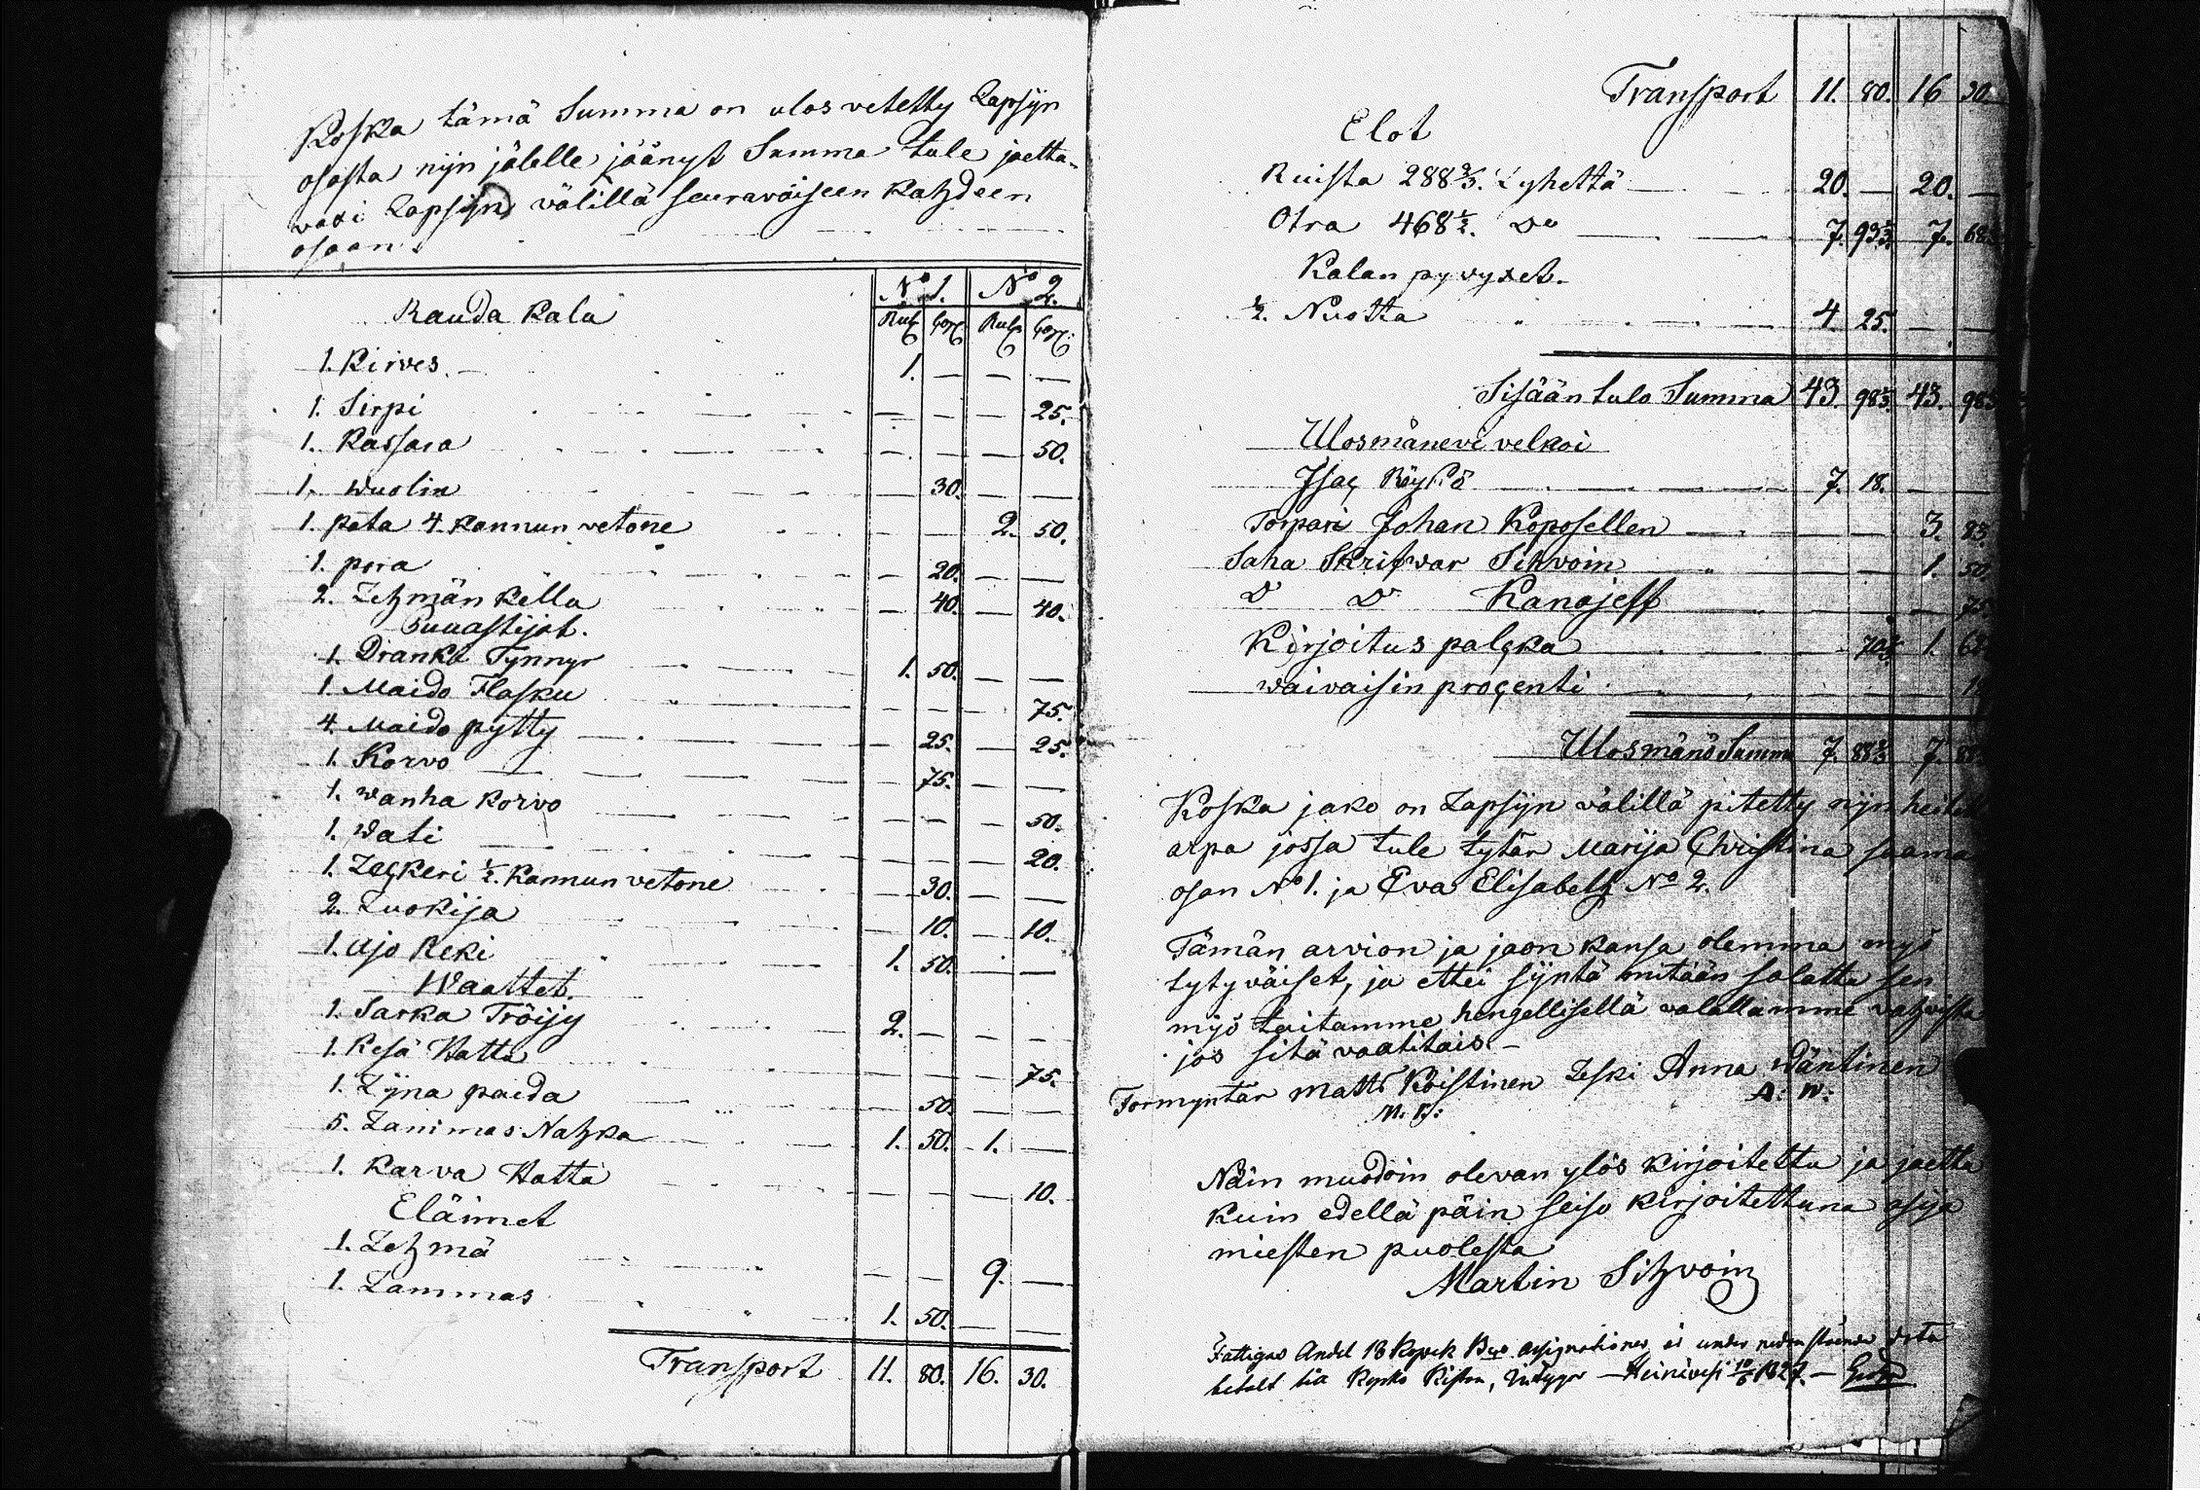 Koska tämä Summa on ulos vetetty Lapsijn
osasta nijn jälelle jäänyt Summa tule jaetta-
waxi Lapsijn välillä seuravaiseen Kahdeen
osaan.
No 1. No 2.
Rauda Kalu Rub Cop Rub Cop
1. Kirves 1. — — —
1. Sirpi — — — 25.
1. Kassara — — — 50.
1. Wuolin — 30. — —
1. pata 4. Kannun vetone — — 2. 50.
1. pora — 20. — —
2. Lehmän Kello — 40. — 40.
Puuastijat.
1. Drankt Tynnyr 1. 50. — —
1. Maido Flasku — — — 75.
4. Maido pytty — 25. — 25.
1. Korvo — 75. — —
1. wanha Korvo — — — 50.
1. Wati — — — 20.
1. Leckeri ½. Kannun vetone — 30. — —
2. Luokija — 10. — 10.
1. Ajo Reki 1. 50. — —
Waattet.
1. Sarka Tröijy 2. — — —
1. Kesä Hattu — — — 75.
1. Lijna paida — 50. — —
5. Lammas Nahka 1. 50. 1. —
1. Karva Hattu — — — 10.
Eläimet
1. Lehmä — — 9. —
1. Lammas 1. 50. — —
Transport 11. 80. 16. 30.
Transport 11. 80. 16 30.
Elot
Ruista 288⅔. Lyhettä 20. — 20. —
Otra 468½. Do 7. 93⅓ 7. 68
Kalan pyydyxet.
½. Nuotta 4. 25. — —
Sisään tulo Summa 43. 98⅓. 43. 98
Ulosmänevi velkoi
Isac Röyskö 7. 18. — —
Torpari Johan Koposellen — — 3. 83.
Saha Skrifwar Sihvoin — — 1. 50
D D Kanajeff — — — 75
Kirjoitus palcka — 70⅔ 1. 62
waivaisin procenti — — — 18
Ulosmänö Summa 7. 88⅔ 7. 88
Koska jako on Lapsijn välillä pitetty nijn heitett
arpa jossa tule tytär Marija Christina saama
osan No 1. ja Eva Elisabeth No 2.
Tämän arvion ja jaon kansa olemma myö
tytyväiset, ja ettei sijntä mitään salattu sen
myö taitamme hengellisellä valallamme vahvista
jos sitä vaatitais —
Formyntär Matts Koistinen Leski Anna Wäntinen
M. K: A: W:
Näin muodoin olevan ylös kirjoitettu ja jaettu
kuin edellä päin seiso kirjoitettuna asija
miesten puolesta
Martin Sihvoin
Fattigas Andel 18 Kopek Bco assignationer är under nedanstående dato
betalt till Kyrko Kistan, intygar — Heinävesi 10/6 1827. —